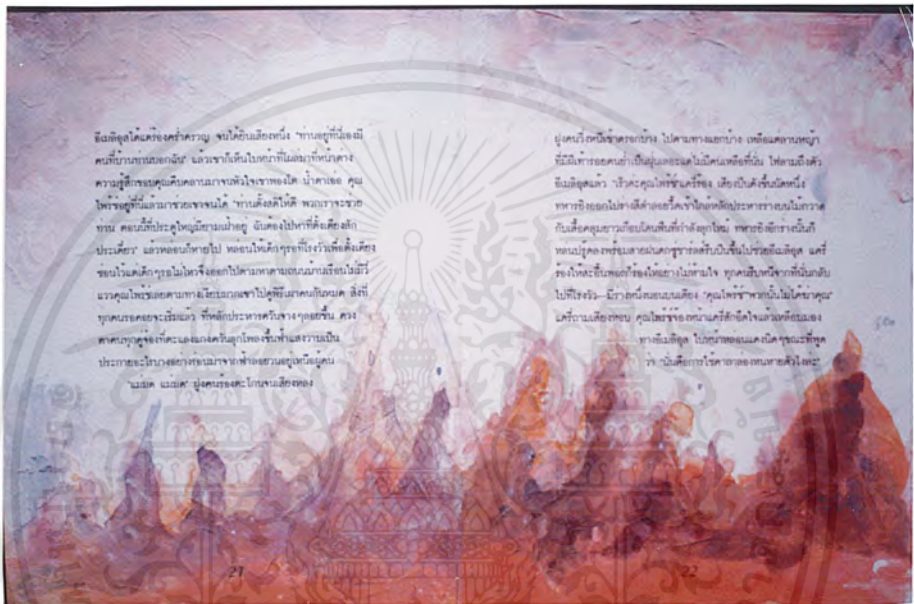 อีเมลิอุสได้แต่ร้องคร่ำครวญ จนได้ยินเสียงหนึ่ง "ท่านอยู่ที่นี่เองมี
คนที่บ้านท่านบอกฉัน" แล้วเขาก็เห็นใบหน้าที่โผล่มาที่หน้าต่าง
ความรู้สึกขอบคุณตื้นตันมาจนหัวใจเขาพองโต น้ำตาเออ คุณ
ไพร้ซ์อยู่ที่นี่แล้วมาช่วยเขาจนได้ "ท่านตั้งสติให้ดี พวกเราจะช่วย
ท่าน ตอนนี้ที่ประตูใหญ่มียามเฝ้าอยู่ ฉันต้องไปหาที่ตั้งเตียงสัก
ประเดี๋ยว" แล้วหล่อนก็หายไป หล่อนให้เด็กๆรอที่โรงวัวเพื่อตั้งเตียง
ซ่อนไว้แต่เด็กๆรอไม่ไหวจึงออกไปตามหาตามถนนบ้านเรือนไม่มีวี่
แววคุณไพร้ซ์เลยตามทางเงียบมากเขาไปดูพิธีเผาคนกันหมด สิ่งที่
ทุกคนรอคอยจะเริ่มแล้ว ที่หลักประหารควันจางๆลอยขึ้น ดวง
ตาคนทุกคู่จ้องที่ตะแลงแกงควันลุกโพลงขึ้นฟ้าแสงวามเป็น
ประกายอะไรบางอย่างร่อนมาจากฟ้าลอยวนอยู่เหนือผู้คน
"แม่มด แม่มด" ฝูงคนร้องตะโกนจนเสียงหลง
21
ฝูงคนวิ่งหนีเข้าตรอกบ้าง ไปตามทางแยกบ้าง เหลือแต่ลานหญ้า
ที่มีฝีเท้ารอยคนย่ำเป็นฝุ่นเลอะแต่ไม่มีคนเหลือที่นั่น ไฟลามถึงตัว
อีเมลิอุสแล้ว "เร็วคะคุณไพร้ซ์"แครี่ร้อง เสียงปืนดังขึ้นนัดหนึ่ง
ทหารยิงออกไปร่างสีดำลอยวี้ดเข้าใกล้หลักประหารร่างบนไม้กวาด
กับเสื้อคลุมยาวเกือบโดนฟืนที่กำลังลุกไหม้ ทหารยิงอีกร่างนั้นก็
หล่นปรู๊ดลงพร้อมสายฝนตกชู่ชาร์ลส์รีบปีนขึ้นไปช่วยอีเมลิอุส แครี่
ร้องไห้สะอื้นพอลก็ร้องไห้อย่างไม่ห้ามใจ ทุกคนรีบหนีจากที่นั่นกลับ
ไปที่โรงวัว—มีร่างหนึ่งนอนบนเตียง "คุณไพร้ซ์"พวกนั้นไม่ได้ฆ่าคุณ"
แครี่ถามเสียงหอบ คุณไพร้ซ์จ้องหน้าแครี่สักอึดใจแล้วเหลือบมอง
ทางอีเมลิอุส ไปหนาหล่อนแดงนิดๆขณะที่พูด
ว่า "นั่นคือการใช้คาถาลองหนหายตัวไงคะ"
22